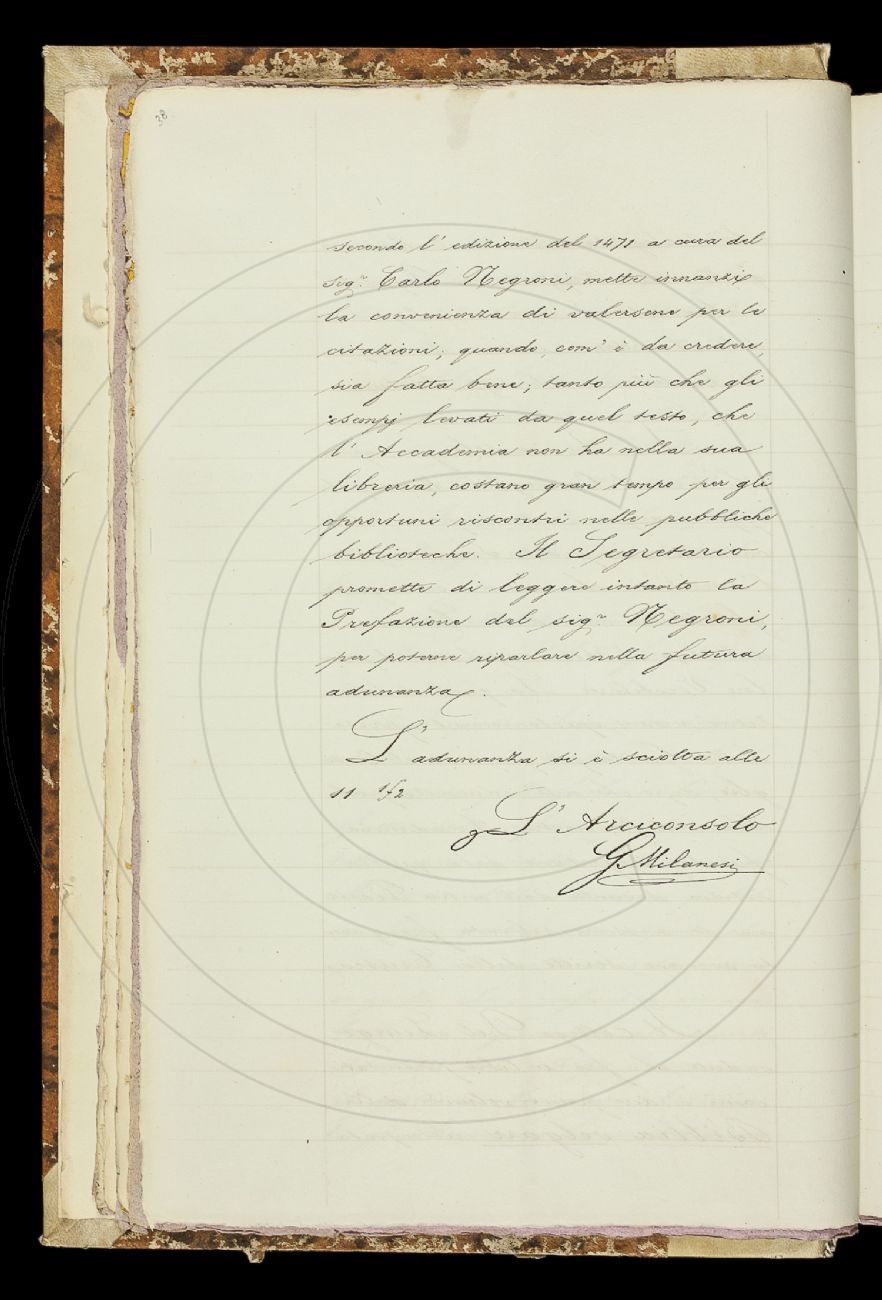 38
secondo l' edizione del 1471 a cura del
sig.r Carlo Negroni, mette innanzi
la convenienza di valersene per le
citazioni; quando, com' è da credere,
sia fatta bene; tanto più che gli
esempj levati da quel testo, che
l' Accademia non ha nella sua
libreria, costano gran tempo per gli
opportuni riscontri nelle pubbliche
biblioteche. Il Segretario
promette di leggere intanto la
Prefazione del sig.r Negroni,
per poterne riparlare nella futura
adunanza.
L' adunanza si è sciolta alle
11 1/2
L' Arciconsolo
G. Milanesi